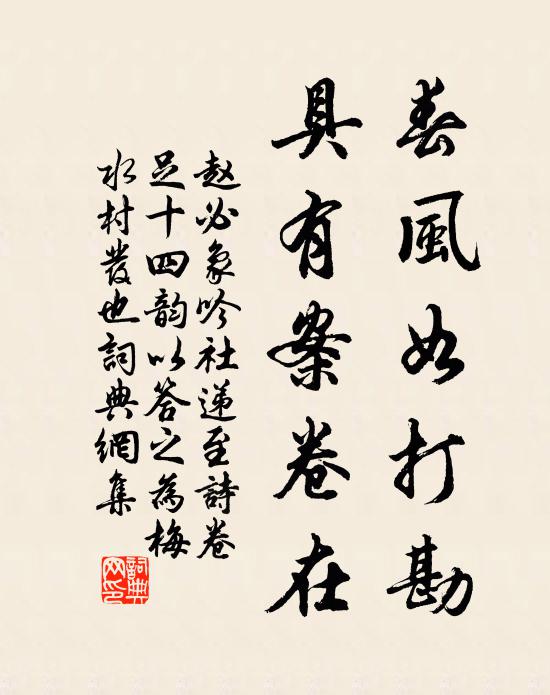 春風如打勘
具有案卷在
赵必象吟社递至詩卷
足十四韵以答之為梅
水村發也詞典網集
詞典
网印